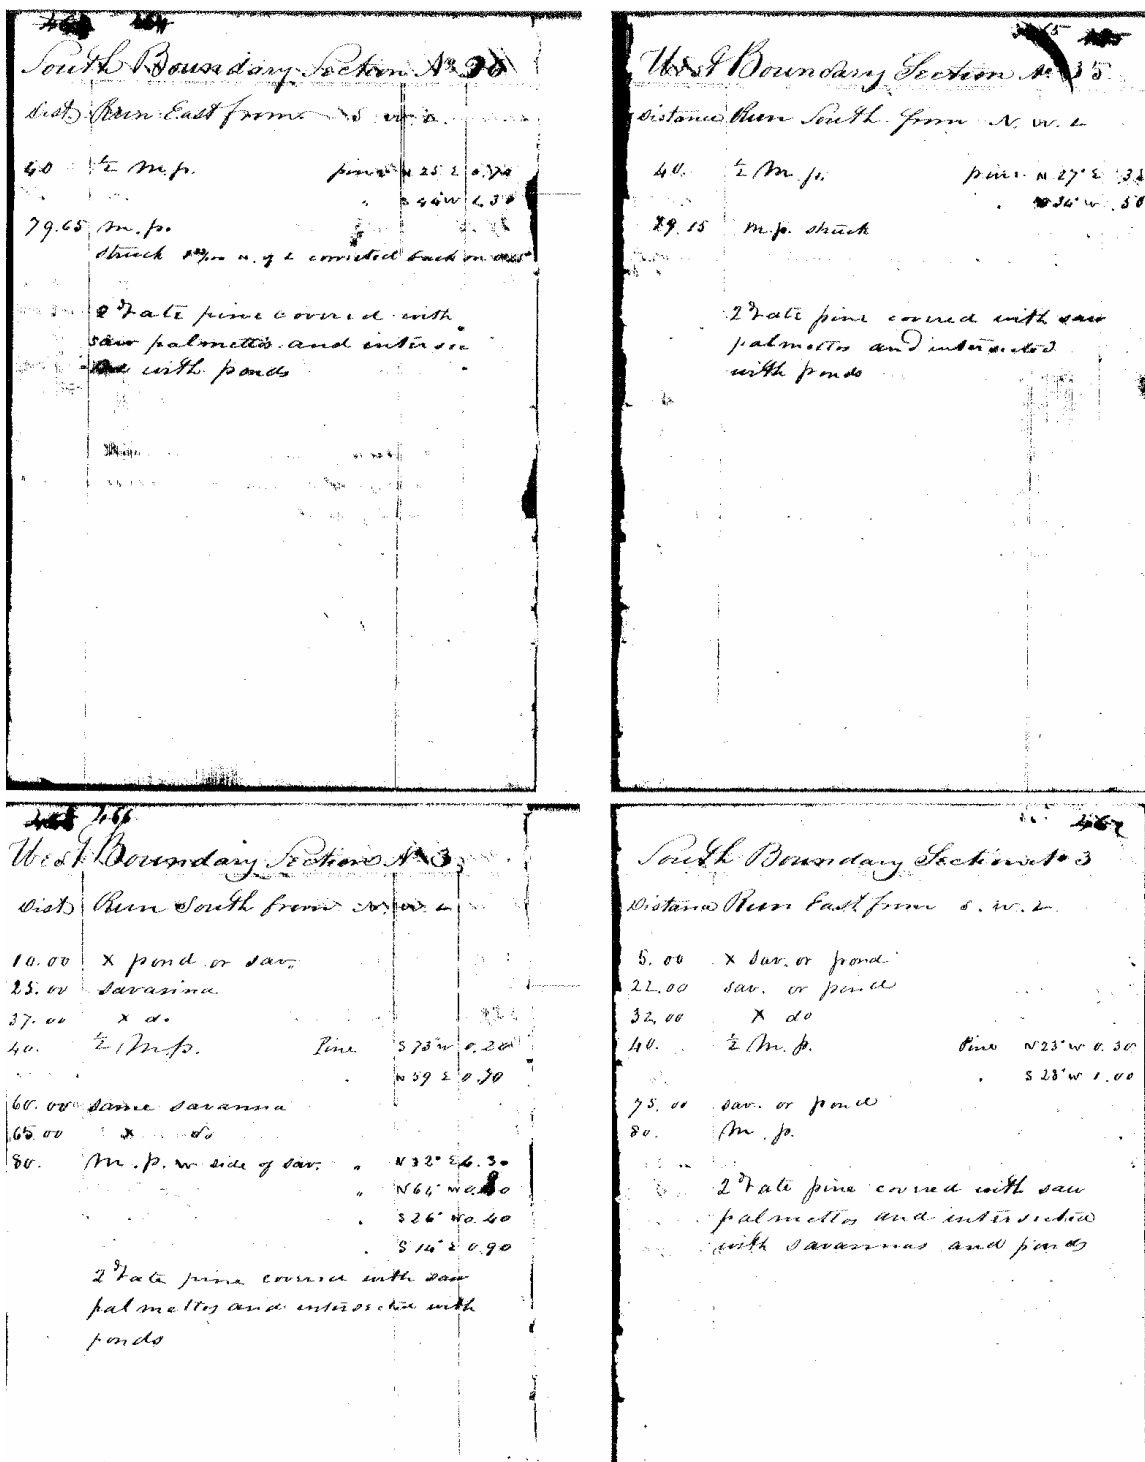 464
South Boundary Section No
Dist Run East from S W
40 ½ M.p. pine N 25 E 0.70
" S 44 W 1.30
79.65 M.p.
struck N. of L corrected back on
2d rate pine covered with
saw palmettos and intersec
with ponds
465
West Boundary Section No 35
Distance Run South from N. W. L
40. ½ M.p. pine N 27° E .32
" 34° W .50
79.15 M.p. struck
2d rate pine covered with saw
palmettos and intersected
with ponds
466
West Boundary Section No 3
Dist Run South from N. W. L
10.00 X pond or sav.
25.00 savanna
37.00 X do
40. ½ M.p. Pine S 73° W 0.20
" N 59 E 0.70
60.00 same savanna
65.00 X do
80. M.p. W side of sav. " N 32° E 6.30
" N 64° W
" S 26° W 0.40
" S 14° E 0.90
2d rate pine covered with saw
palmettos and intersected with
ponds
467
South Boundary Section No 3
Distance Run East from S. W. L
5.00 X sav. or pond
22.00 sav. or pond
32.00 X do
40. ½ M.p. Pine N 23° W 0.30
" S 28° W 1.00
75.00 sav. or pond
80. M.p.
2d rate pine covered with saw
palmettos and intersected
with savannas and ponds